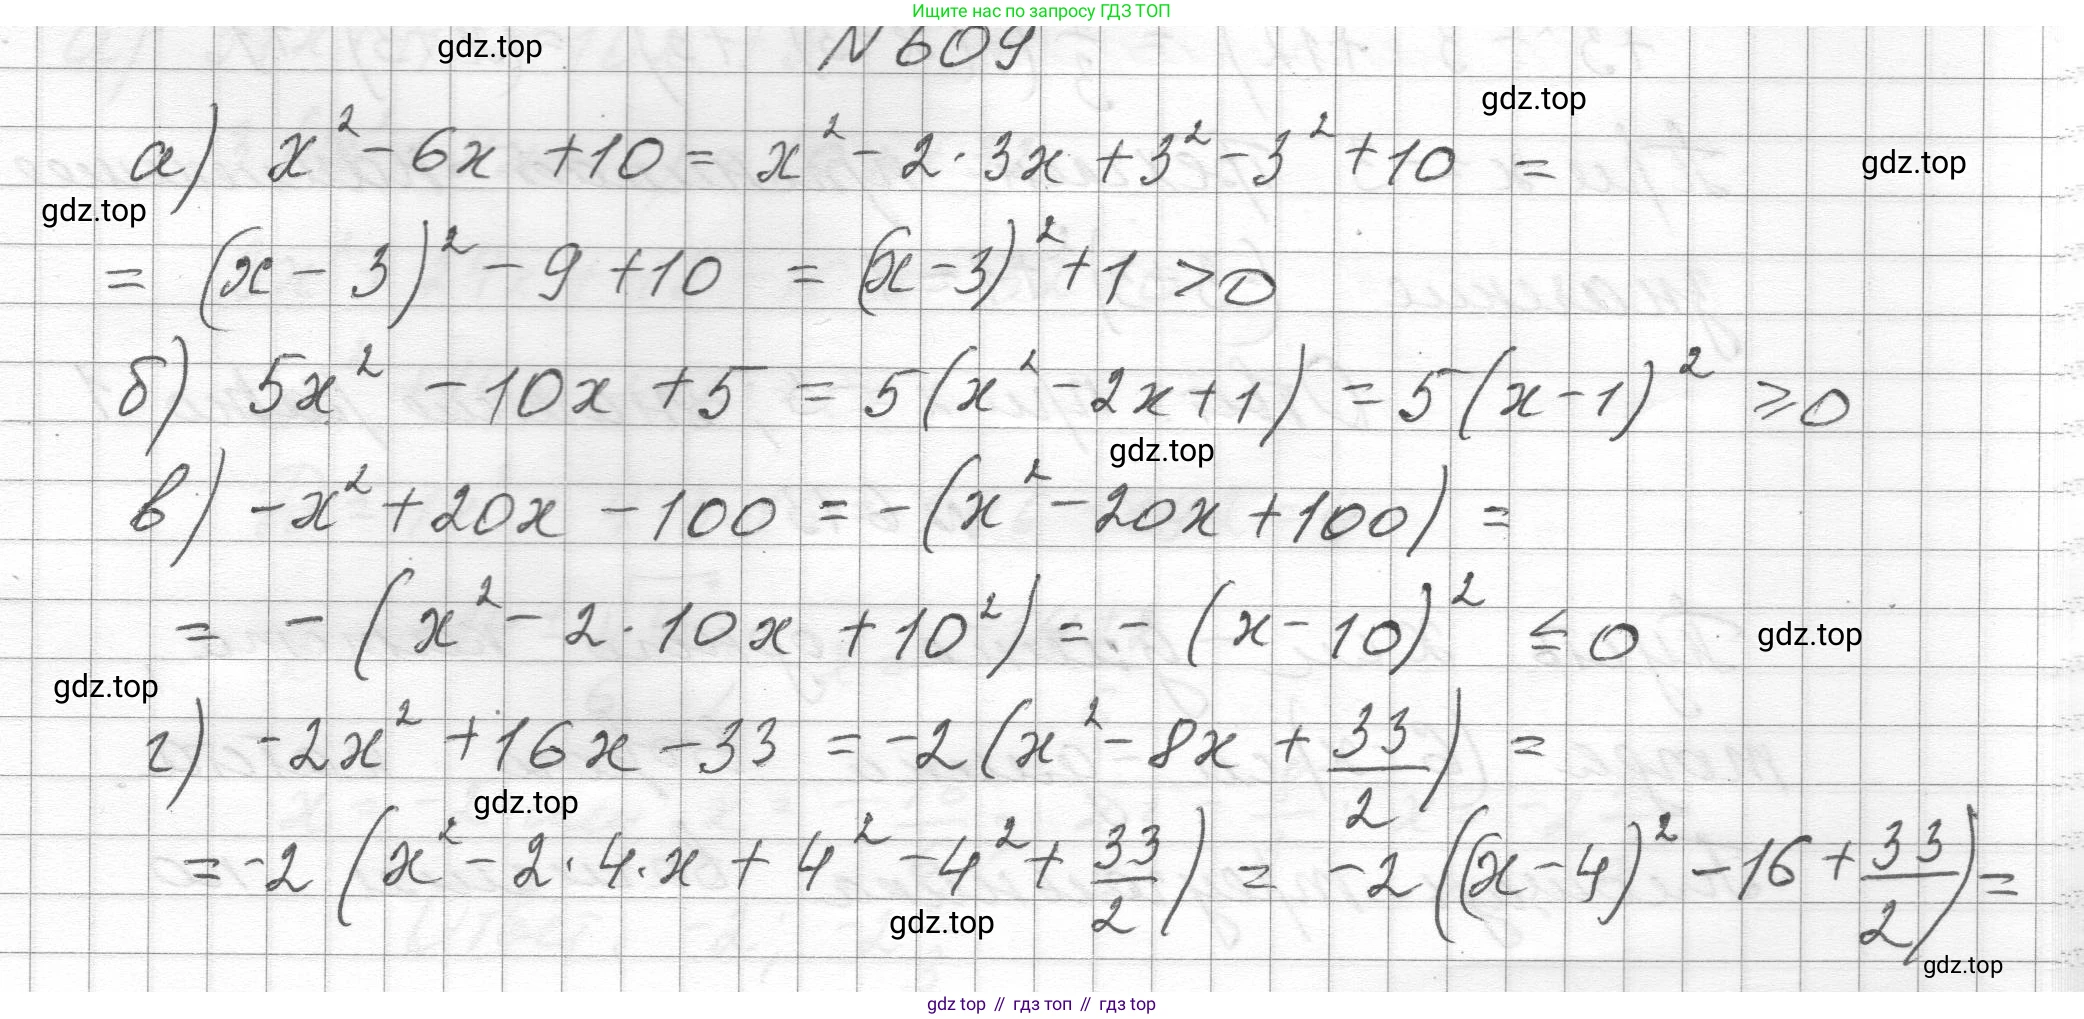 Ищите нас по запросу ГДЗ ТОП
gdz.top
N 609
gdz.top
а) x² - 6x + 10 = x² - 2·3x + 3² - 3² + 10 =
gdz.top
gdz.top
= (x - 3)² - 9 + 10 = (x - 3)² + 1 > 0
б) 5x² - 10x + 5 = 5(x² - 2x + 1) = 5(x - 1)² ⩾ 0
gdz.top
в) -x² + 20x - 100 = -(x² - 20x + 100) =
= -(x² - 2·10x + 10²) = -(x - 10)² ≤ 0
gdz.top
gdz.top
г) -2x² + 16x - 33 = -2(x² - 8x + 33/2) =
gdz.top
= -2(x² - 2·4·x + 4² - 4² + 33/2) = -2((x - 4)² - 16 + 33/2) =
gdz.top
gdz.top
gdz top // гдз топ // гдз top